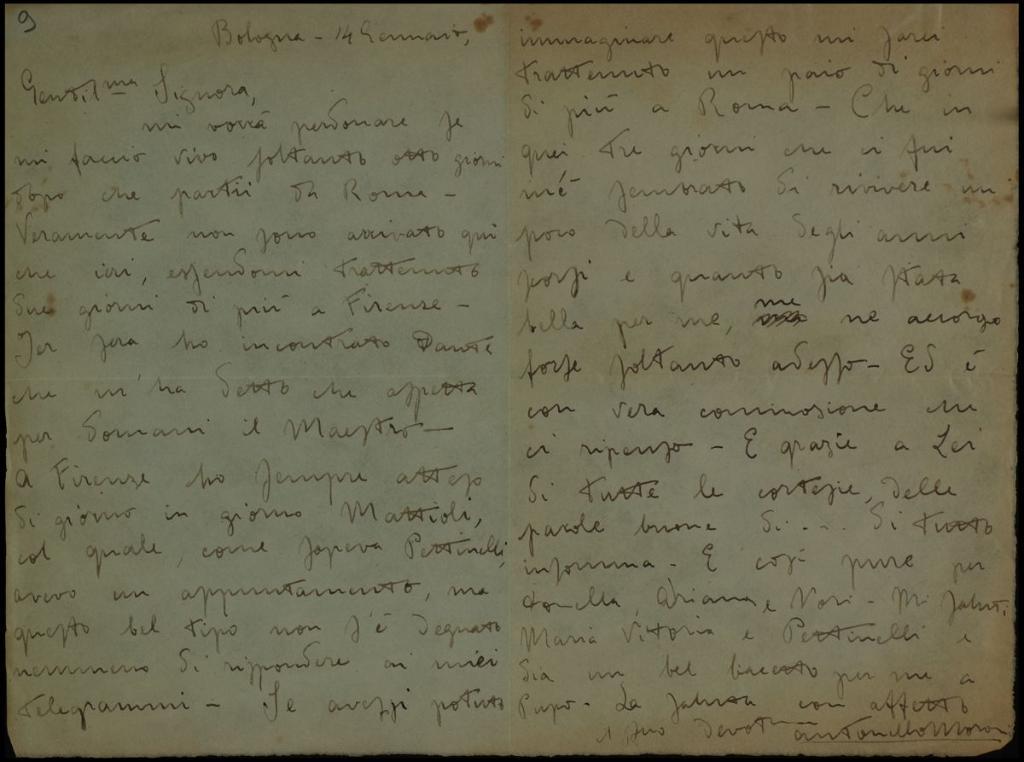 9
Bologna - 14 Gennaio,
Gentil.ma Signora,
mi vorrà perdonare se
mi faccio vivo soltanto otto giorni
dopo che partii da Roma -
Veramente non sono arrivato qui
che ieri, essendomi trattenuto
due giorni di più a Firenze -
Ier sera ho incontrato Dante
che m'ha detto che aspetta
per domani il Maestro -
A Firenze ho sempre atteso
di giorno in giorno Mattioli,
col quale, come sapeva Pettinelli,
avevo un appuntamento, ma
questo bel tipo non s'è degnato
nemmeno di rispondere ai miei
telegrammi - Se avessi potuto
immaginare questo mi sarei
trattenuto un paio di giorni
di più a Roma - Che in
quei tre giorni che ci fui
m'è sembrato di rivivere un
poco della vita degli anni
scorsi e quanto sia stata
bella per me, me ne accorgo
forse soltanto adesso - Ed è
con vera commozione che
ci ripenso - E grazie a Lei
di tutte le cortesie, delle
parole buone di.... di tutto
insomma - E così pure per
Ariana, e Nori - Mi saluti
Maria Vitoria e Pettinelli e
dia un bel bacetto per me a
Pupo - La saluta con affetto
il suo devot